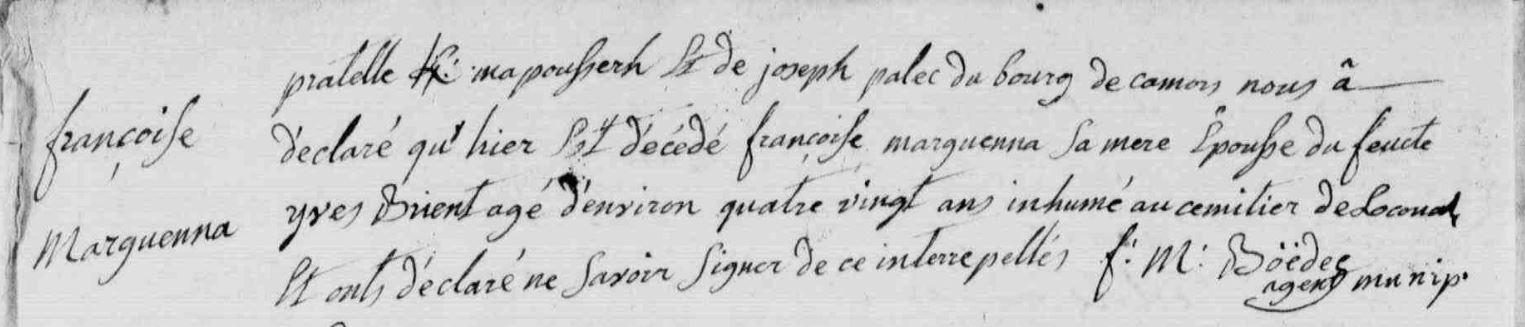 pratelle mapousserh Et de joseph palec du bourg de camors nous â
françoise
déclaré qu'hier Est décédé françoise marguenna sa mere Epousse du feu
yves Brient agé d'environ quatre vingt ans inhumé au cemitier de Locoual
Marguenna
Et onts déclaré ne savoir signer de ce interrepellés f: M: Böëdec
agent munip.